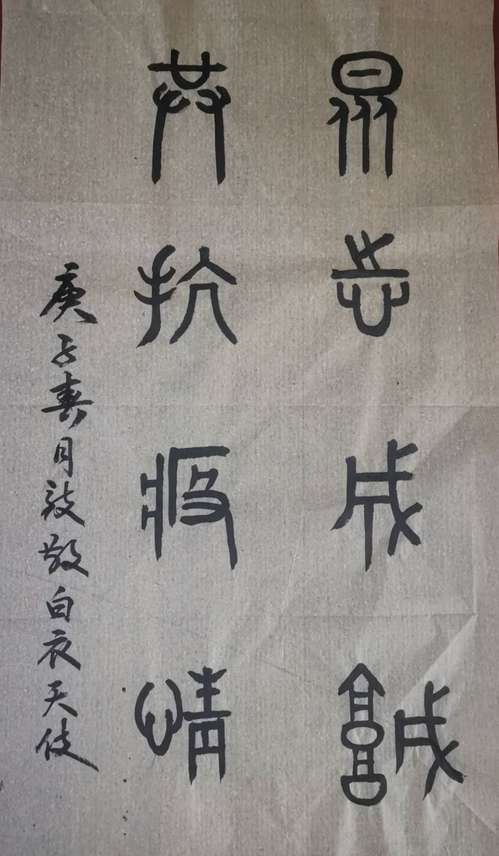 眾志成城
共抗疫情
庚子春月致敬白衣天使